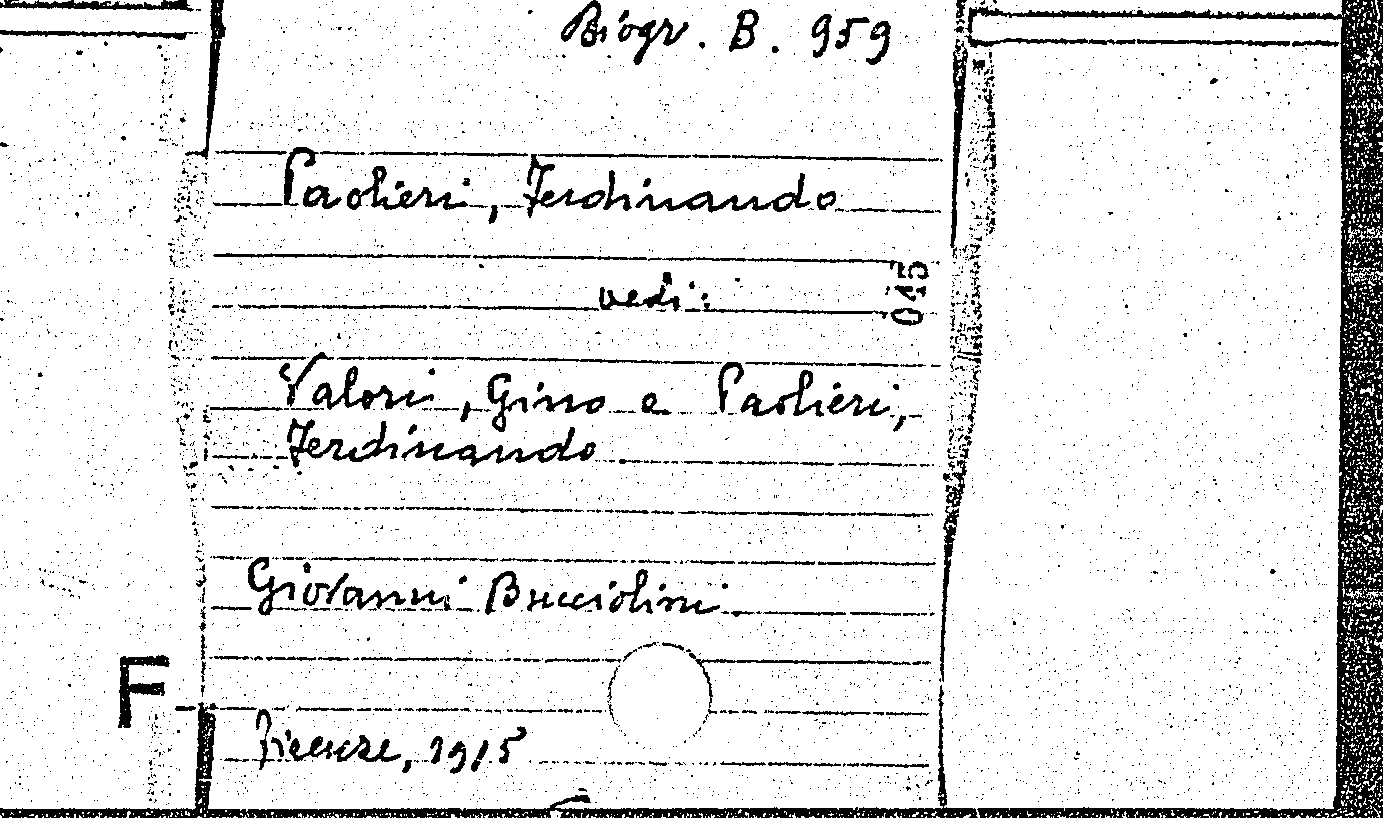 Biogr. B. 959
Paolieri, Ferdinando
vedi:
045
Valori, Gino e Paolieri,
Ferdinando
Giovanni Bucciolini
F
Firenze, 1915